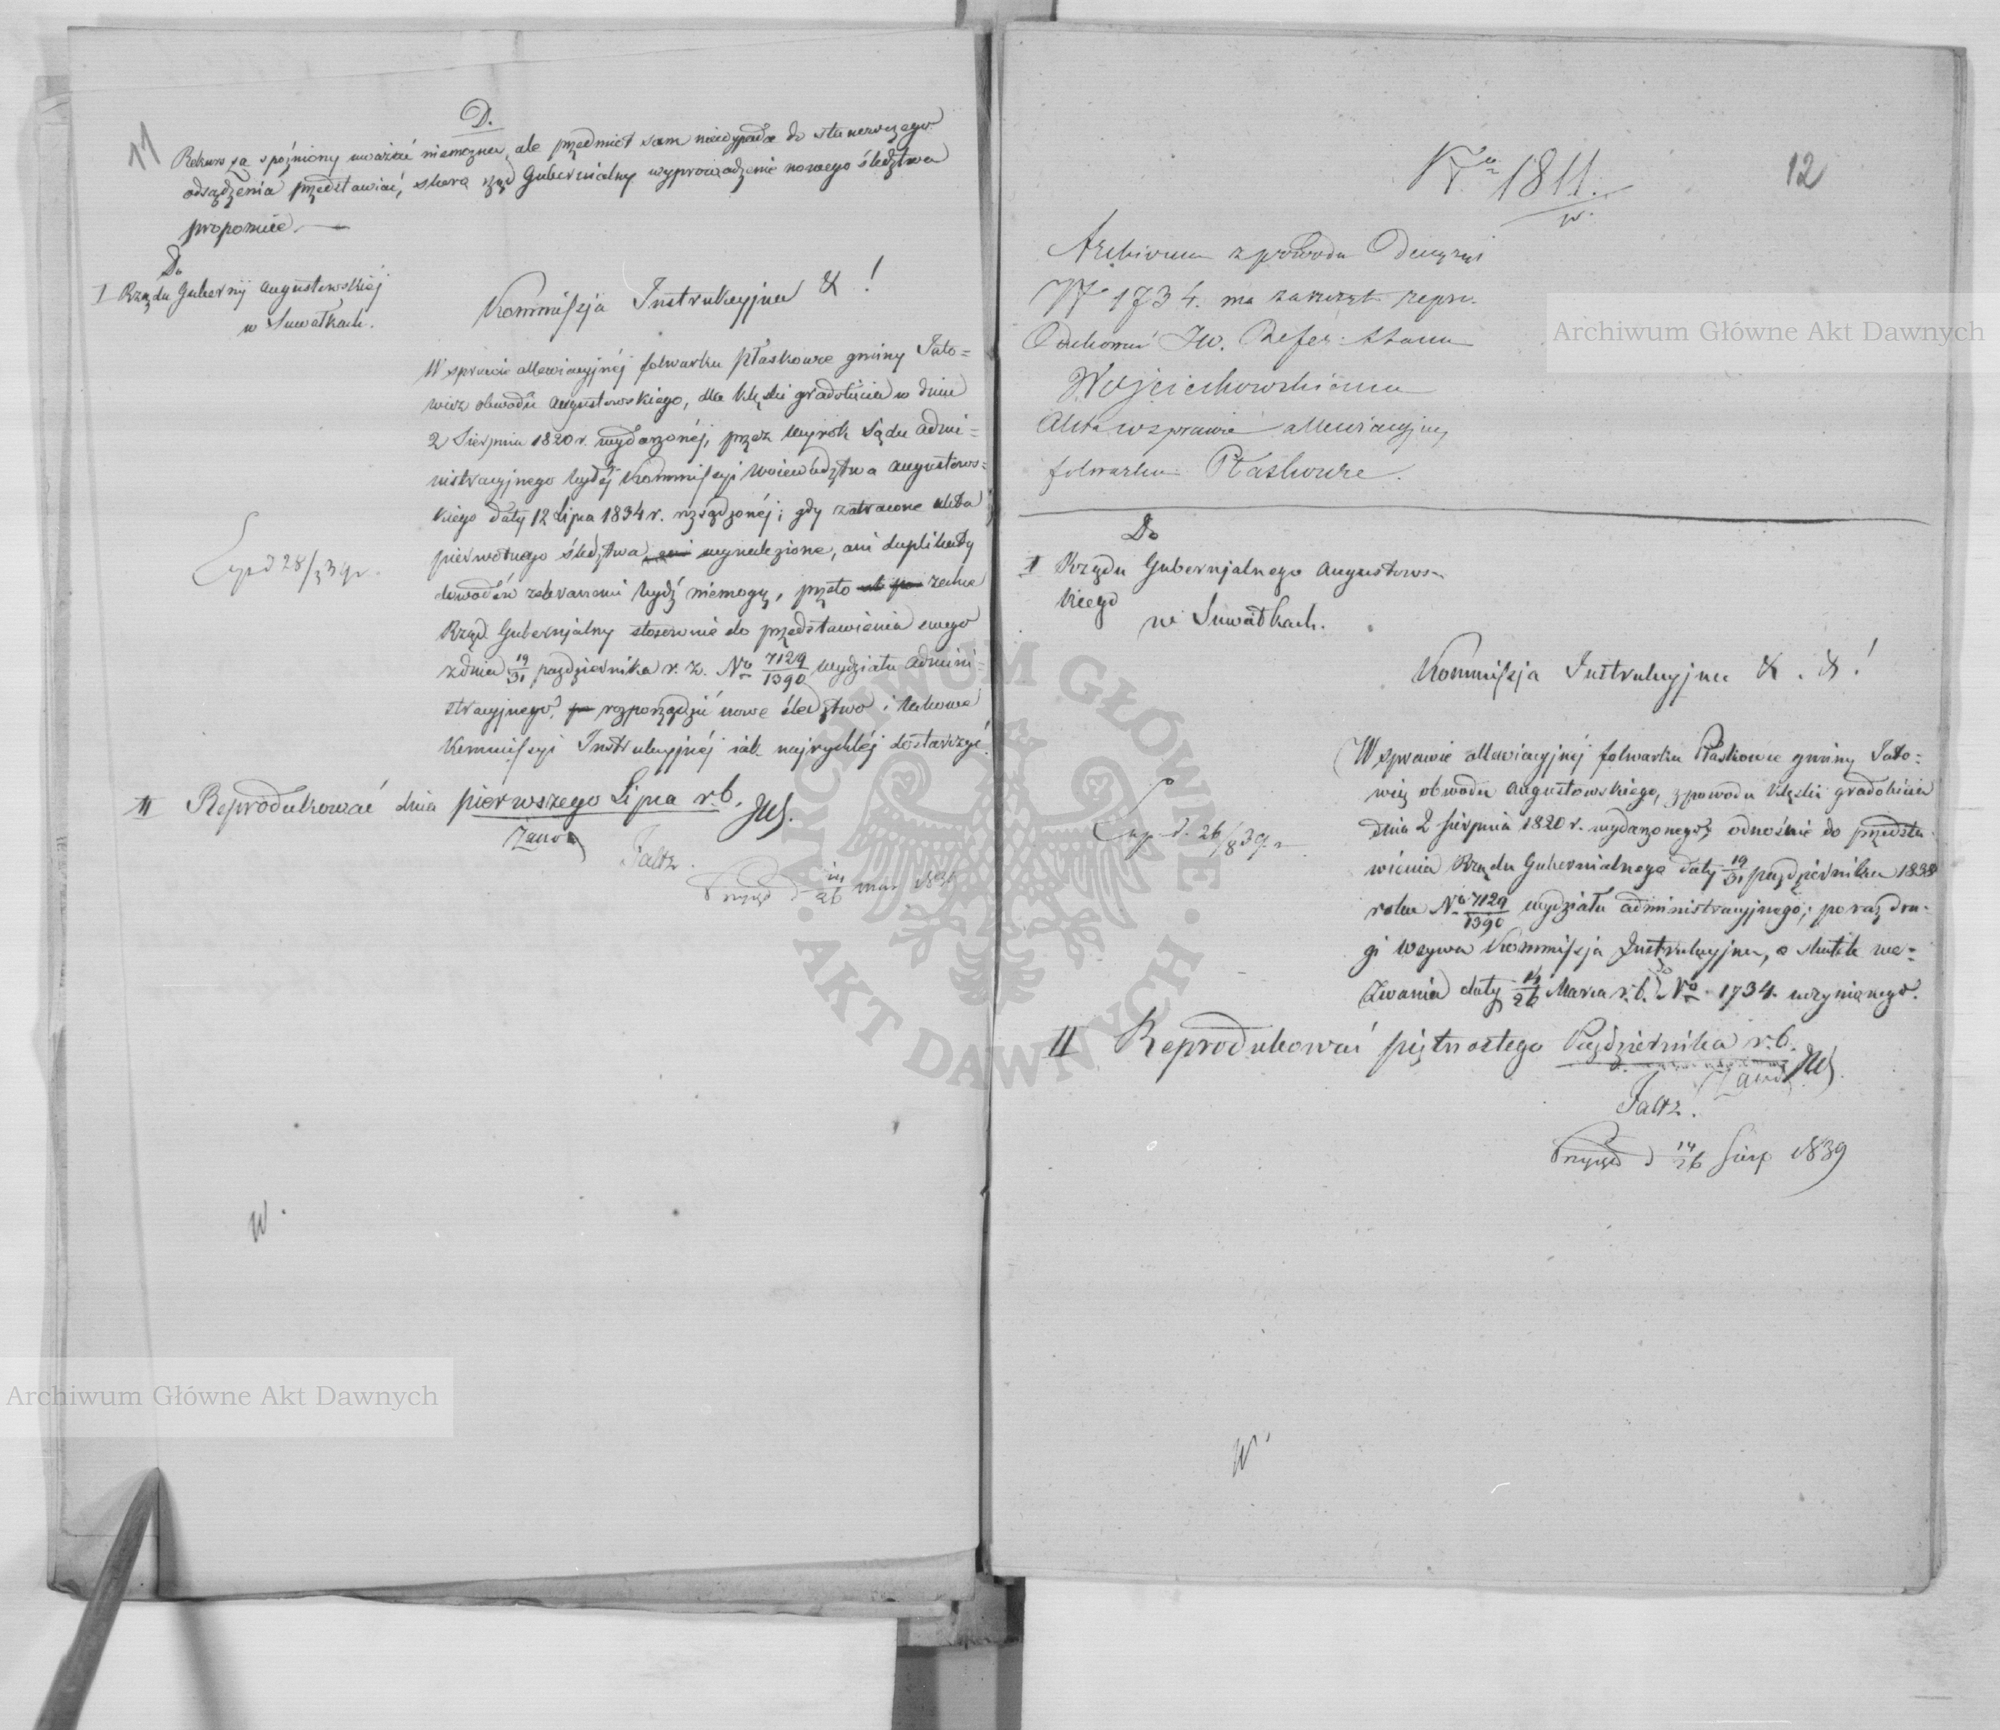 11
D.
Rekurs za spóźniony uważać niemożna, ale przedmiot sam nieoypada do stanowczego
odsądzenia przedstawiać, skoro rząd Gubernialny wyprowadzenie nowego śledztwa
proponuie. —
Do
I Rządu Gubernij Augustowskiéj
w Suwałkach.
Kommissja Instrukcyjna & !
W sprawie allewiacyjnéj folwarku Płaskowce gminy Jato=
wiez obwodu Augustowskiego, dla klęski gradobicia w dniu
2 Sierpnia 1820 r. wydarzonéj, przez wyrok Sądu Admi=
nistracyjnego byłéj Kommissyi Woiewództwa Augustows=
kiego daty 12 Lipca 1834 r. rozsądzonéj; gdy zatracone akta
pierwotnego śledztwa wynalezione, ani duplikaty
dowodów zebranemi bydź niemogą, przeto zechce
Rząd Gubernjalny stosownie do przedstawienia swego
z dnia 19/31 października r. z. No 7129/1390 wydziału admini=
stracyjnego, rozporządzić nowe śledztwo i takowe
Kommissyi Instrukcyjnéj iak najrychléj dostarczyć.
Exp d 28/3 39 r.
II Reprodukować dnia pierwszego Lipca r. b.
Faltz
14/26 mar 1839
w.
12
No 1811.
w.
Archivum z powodu Decyzyi
No 1734. ma zakrzęt repr.
JW. Refer: Stanu
Wojciechowskiemu
Akta w sprawie allewiacyjnej
folwarku Płaskowce.
Do
I Rządu Gubernjalnego Augustows-
kiego
w Suwałkach.
Kommissja Instrukcyjna & . & !
W sprawie allewiacyjnéj folwarku Płaskowce gminy Jato-
wiez obwodu Augustowskiego, z powodu klęski gradobicia
dnia 2 Sierpnia 1820 r. wydarzonego, odnośnie do przedsta-
wienia Rządu Gubernialnego daty 19/31 października 1838
roku No 7129/1390 wydziału administracyjnego; po raz dru-
gi wzywa Kommissja Instrukcyjna, o skutek we-
zwania daty 14/26 Marca r. b. do No 1734. uczynionego.
Exp. d. 26/8 39 r
II Reprodukować piętnastego Października r. b.
Faltz.
14/26 Sierp 1839
w.
Archiwum Główne Akt Dawnych
Archiwum Główne Akt Dawnych
ARCHIWUM GŁÓWNE
AKT DAWNYCH